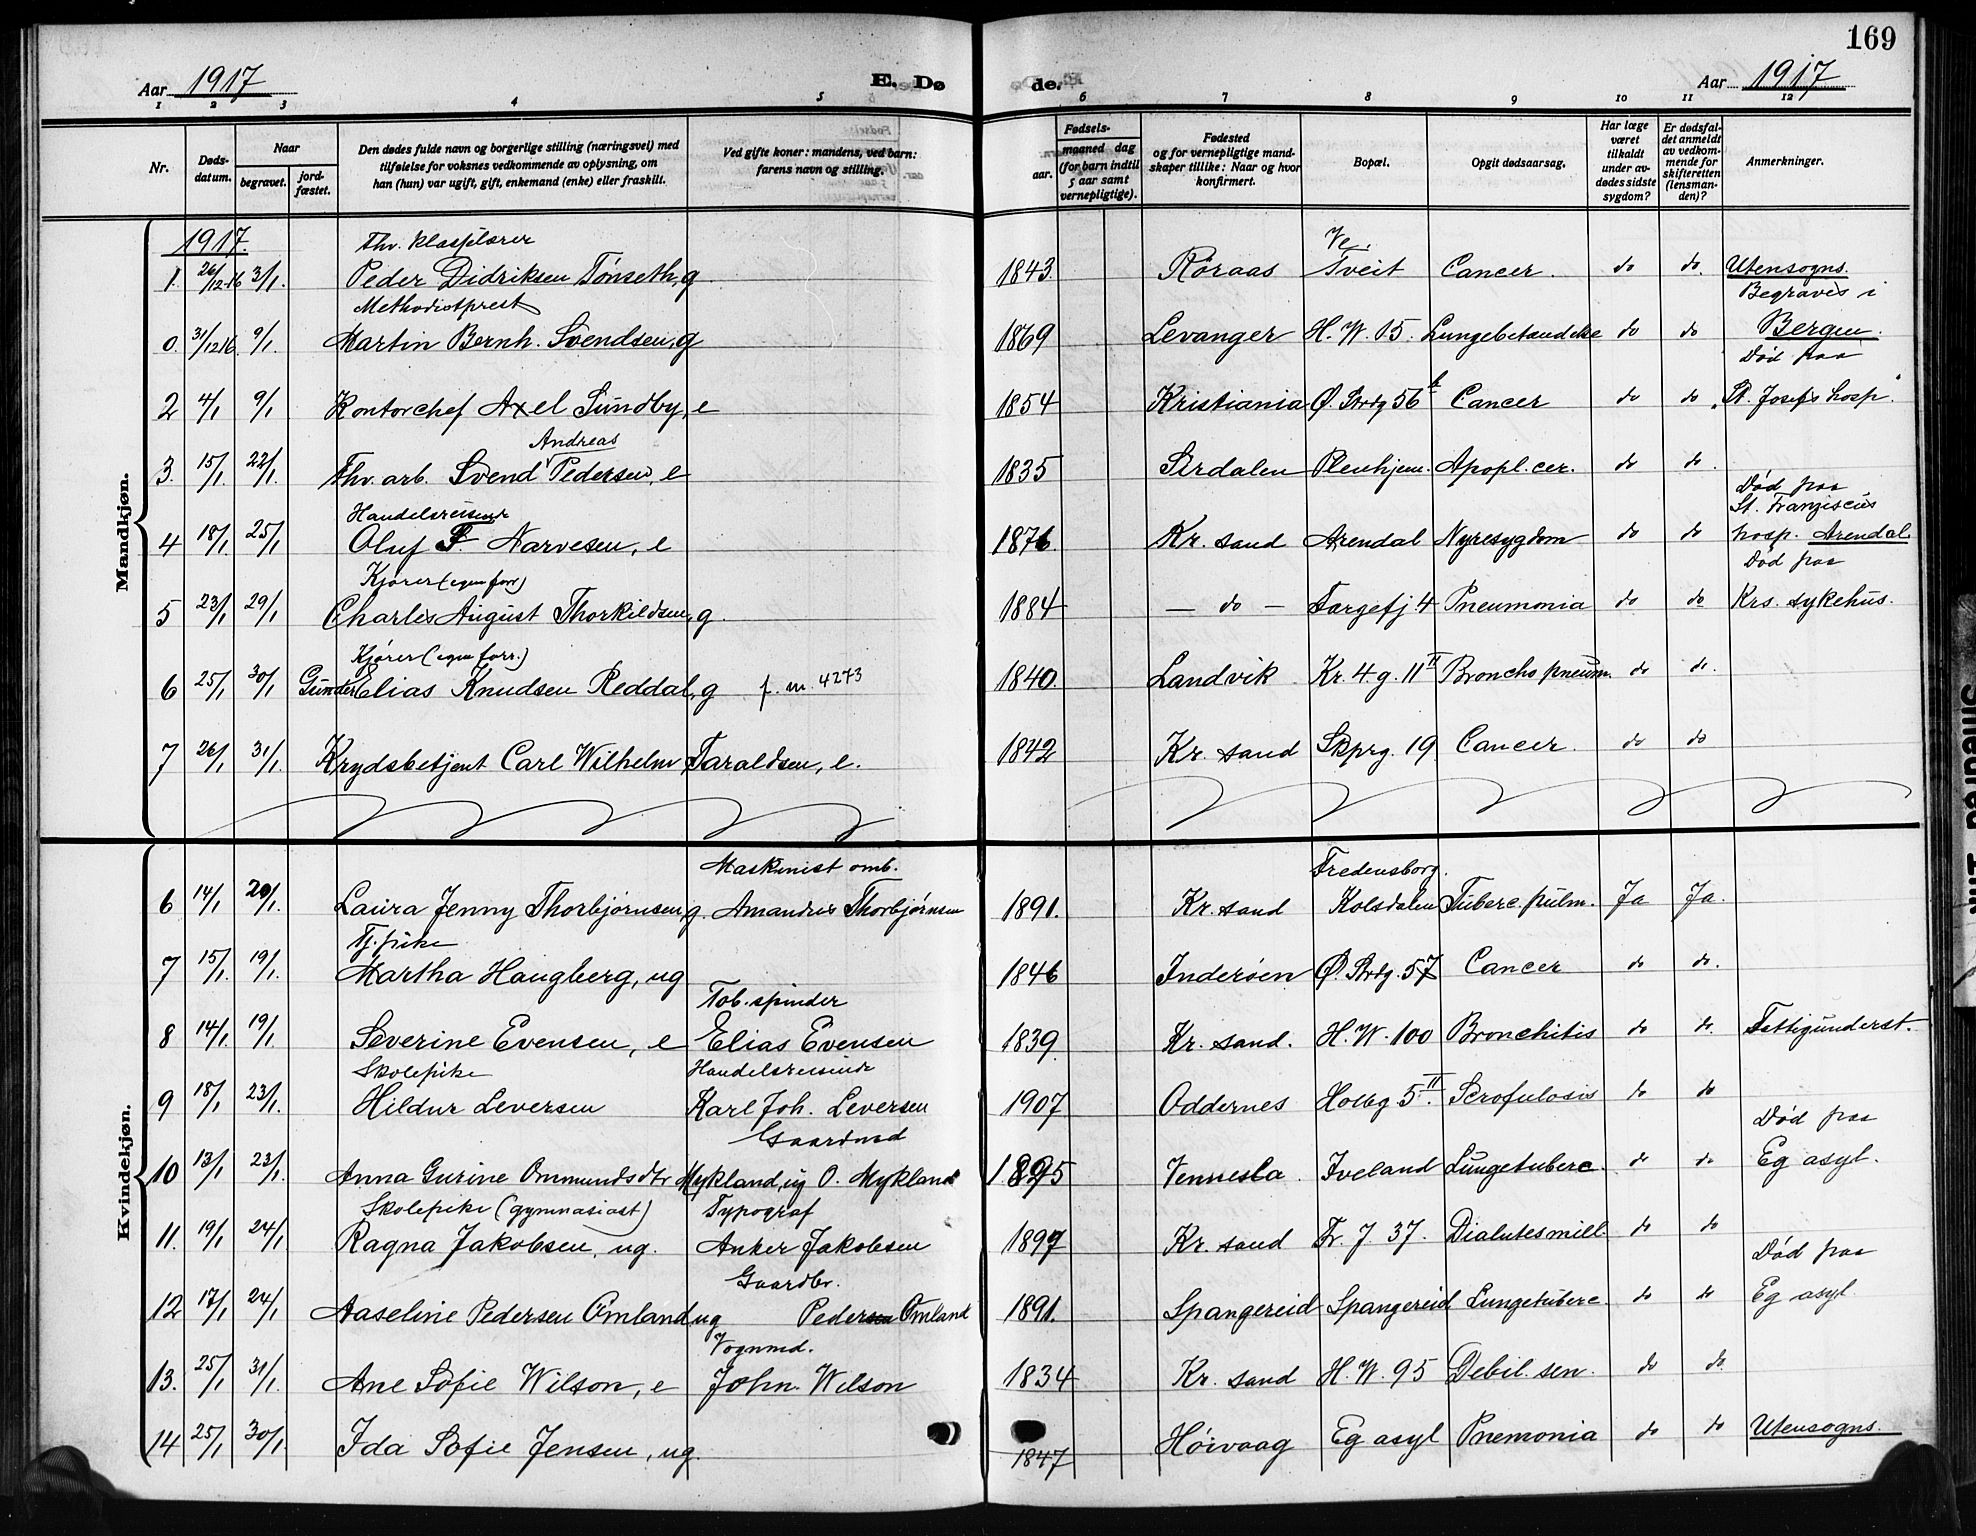 169
Aar 1917 E. Dø de. Aar 1917
1 2 3 4 5 6 7 8 9 10 11 12
Nr. Døds-datum. Naar begravet. jord-fæstet. Den dødes fulde navn og borgerlige stilling (næringsvei) med tilføielse for voksnes vedkommende av oplysning, om han (hun) var ugift, gift, enkemand (enke) eller fraskilt. Ved gifte koner: mandens, ved barn: farens navn og stilling. Fødsels- aar. maaned dag (for barn indtil 5 aar samt vernepligtige). Fødested og for vernepligtige mand-skaper tillike: Naar og hvor konfirmert. Bopæl. Opgit dødsaarsag. Har læge været tilkaldt under av-dødes sidste sygdom? Er dødsfal-det anmeldt av vedkom-mende for skifteretten (lensman-den)? Anmerkninger.
Mandkjøn.
1917.
Fhv. klasselærer Ve.
1. 26/12.16 3/1. Peder Didriksen Tönseth, g 1843. Röraas Tveit Cancer. do do. Utensogns.
Methodistprest Begraves i
0. 31/12.16 9/1. Martin Bernh. Svendsen, g 1869 Levanger H. W. 15. Lungebetændelse do do Bergen.
Død paa
2 4/1 9/1 Kontorchef Axel Sundby, e 1854 Kristiania Ø. Strdg 56 b Cancer do do "St. Josefs hosp."
Andreas
3. 15/1. 22/1. Fhv. arb. Svend Pedersen, e 1835 Sirdalen Pleiehjem. Apopl. cer. do do.
Død paa
Handelsreisende St. Franziscus
4 18/1. 25/1 Oluf F. Narvesen, e 1876. Kr. sand Arendal Nyresygdom do do hosp. Arendal
Kjører (egen forr) Død paa
5 23/1 29/1. Charles August Thorkildsen, g. 1884 — do — Torgefj. 4 Pneumonia do do Krs. sykehus.
Kjører (egen forr.)
6 25/1 30/1 Gunder Elias Knudsen Reddal, g f. m. 4273 1840. Landvik Kr. 4 g. 11 II Broncho pneum. do do.
7 26/1 31/1. Krydsbetjent Carl Wilhelm Taraldsen, e. 1842 Kr. sand Skprg. 19 Cancer. do do
Kvindekjøn.
Maskinist omb. Fredensborg.
6 14/1 20/1. Laura Jenny Thorbjørnsen, g. Amandus Thorbjørnsen 1891. Kr. sand Kolsdalen Tuberc. pulm. Ja Ja.
Tj. pike
7 15/1. 19/1. Martha Haugberg, ug 1846 Inderøen Ø. Strdg. 57 Cancer do do.
Tob. spinder
8 14/1. 19/1. Severine Evensen, e Elias Evensen 1839. Kr. sand. H. W. 100 Bronchitis do do. Fattigunderst.
Skolepike Handelsreisende
9 18/1 23/1. Hildur Leversen Karl Joh. Leversen 1907 Oddernes Holbg 5 II. Scrofulosis do do
Gaardmd Død paa
10 13/1 23/1. Anna Gurine Ommundsdtr Mykland, ug O. Mykland 1895 Vennesla. Iveland Lungetuberc. do do Eg asyl.
Skolepike (gymnasiast) Typograf
11. 19/1 24/1 Ragna Jakobsen, ug. Anker Jakobsen 1897 Kr. sand Fr. J 37. Diabetes mill. do do
Gaardbr. Død paa
12 17/1 24/1 Aaseline Pedersen Omland ug Pedersen Omland 1891. Spangereid Spangereid Lungetuberc. do do Eg asyl.
Vognmd.
13. 25/1 31/1. Ane Sofie Wilson, e John Wilson 1834 Kr. sand H. W. 95 Debil. sen. do do.
14 25/1 30/1. Ida Sofie Jensen, ug. 1847 Høivaag Eg asyl Pnemonia do do Utensogns.